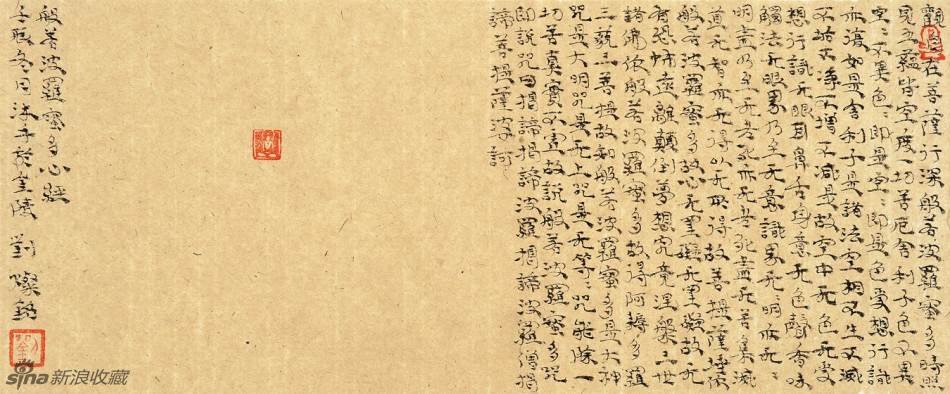 觀自在菩薩行深般若波羅蜜多時照
見五蘊皆空度一切苦厄舍利子色不異
空〻不異色〻即是空〻即是色受想行識
亦復如是舍利子是諸法空相不生不滅
不垢不淨不增不減是故空中无色无受
想行識无眼耳鼻舌身意无色聲香味
觸法无眼界乃至无意識界无〻明亦无〻
明盡乃至无老死亦无老死盡无苦集滅
道无智亦无得以无所得故菩提薩埵依
般若波羅蜜多故心无罣礙无罣礙故无
有恐怖遠離顛倒夢想究竟涅槃三世
諸佛依般若波羅蜜多故得阿耨多羅
三藐三菩提故知般若波羅蜜多是大神
咒是大明咒是无上咒是无等〻咒能除一
切苦真實不虛故說般若波羅蜜多咒
即說咒曰揭諦揭諦波羅揭諦波羅僧揭
諦菩提薩婆訶
般若波羅蜜多心經
壬辰冬月沐手於金陵 劉燦銘
sina新浪收藏